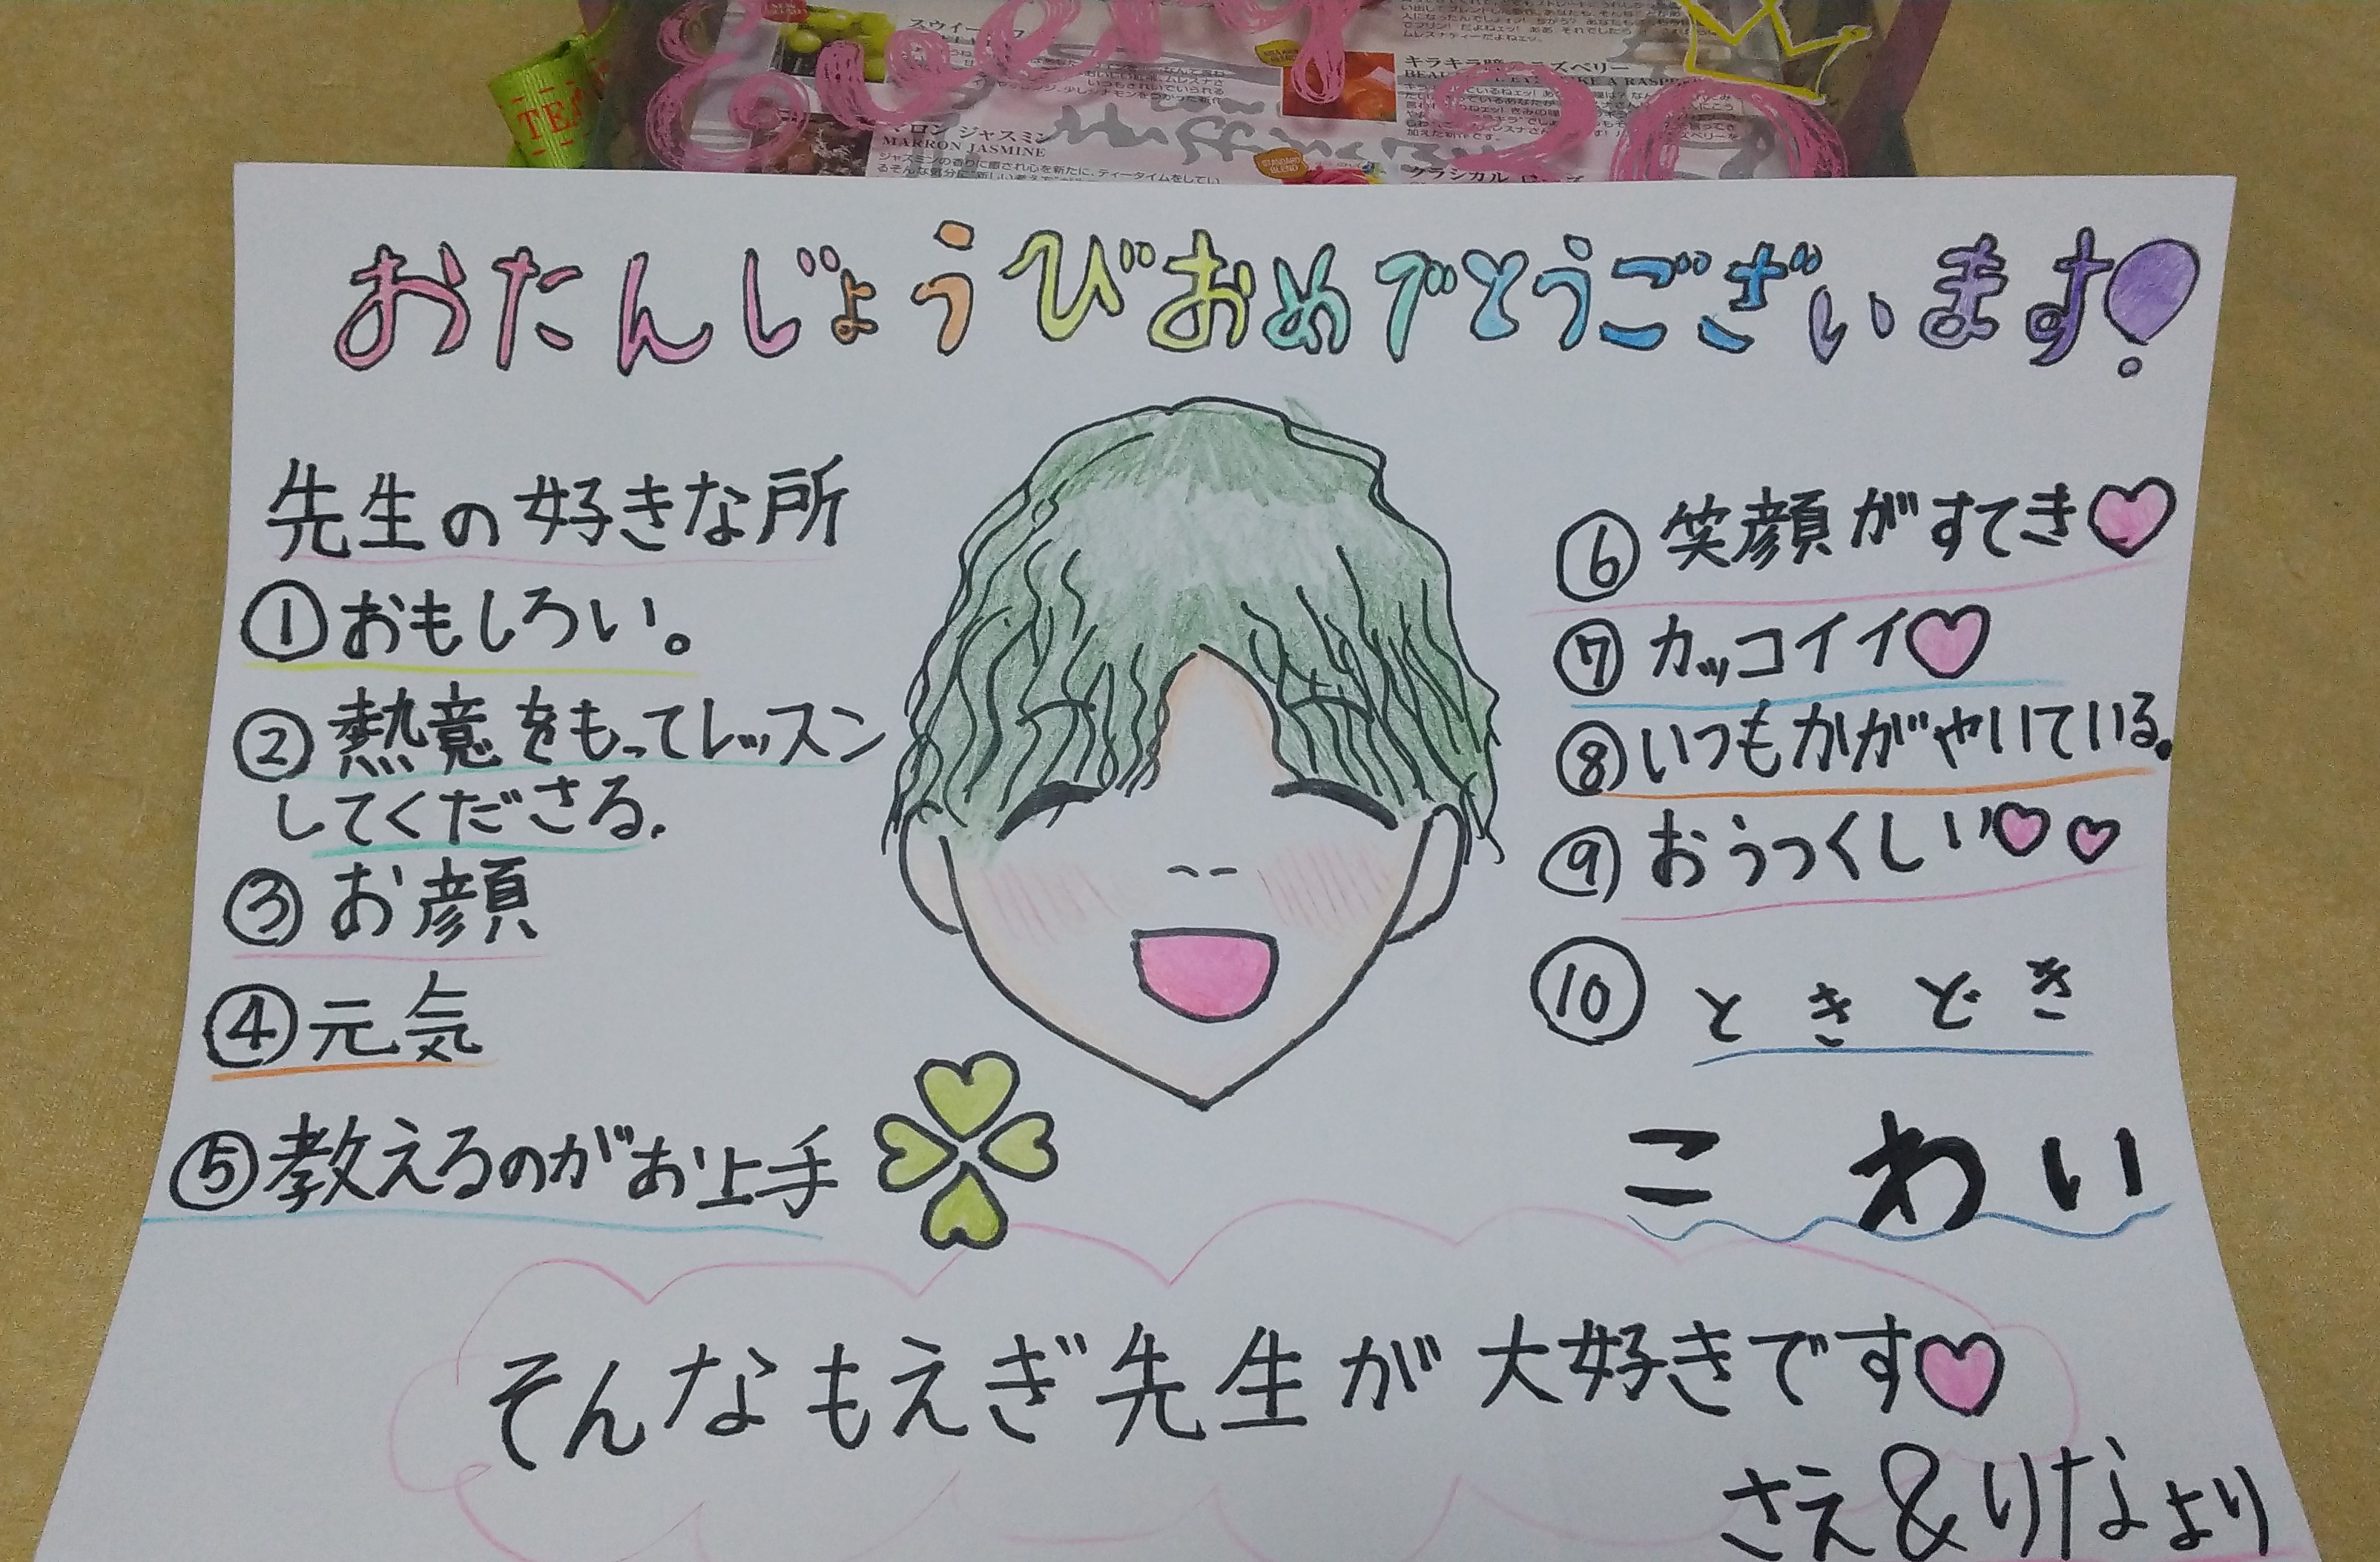 スウィート
キラキラ瞳のラズベリー
マロン ジャスミン
MARRON JASMINE
ジャスミンの香りに癒され心を新たに、ティータイムをしてい
STANDARD BLEND
クラシカル ローズ
おたんじょうびおめでとうございます!
先生の好きな所
①おもしろい。
②熱意をもってレッスン
してくださる.
③お顔
④元気
⑤教えるのがお上手
⑥笑顔がすてき♡
⑦カッコイイ♡
⑧いつもかがやいている。
⑨おうつくしい♡♡
⑩ときどき
こわい
そんなもえぎ先生が大好きです♡
さえ&りなより